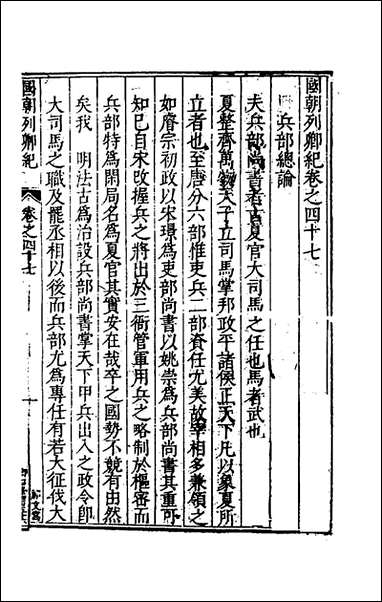 國朝列卿紀卷之四十七
兵部總論
夫兵部尚書者古夏官大司馬之任也馬者武也
夏整齊萬物天子立司馬掌邦政平諸侯正天下凡以象夏所
立者也至唐分六部惟吏兵二部資任尤美故宰相多兼領之
如睿宗初政以宋璟為吏部尚書以姚崇為兵部尚書其重可
知巳自宋改握兵之將出於三衙管軍用兵之略制於樞密而
兵部特為閑局名為夏官其實安在哉卒之國勢不競有由然
矣我 明法古為治設兵部尚書掌天下甲兵出入之政令即
大司馬之職及罷丞相以後而兵部尤為專任有若大征伐大
國朝列卿紀
卷之四十七